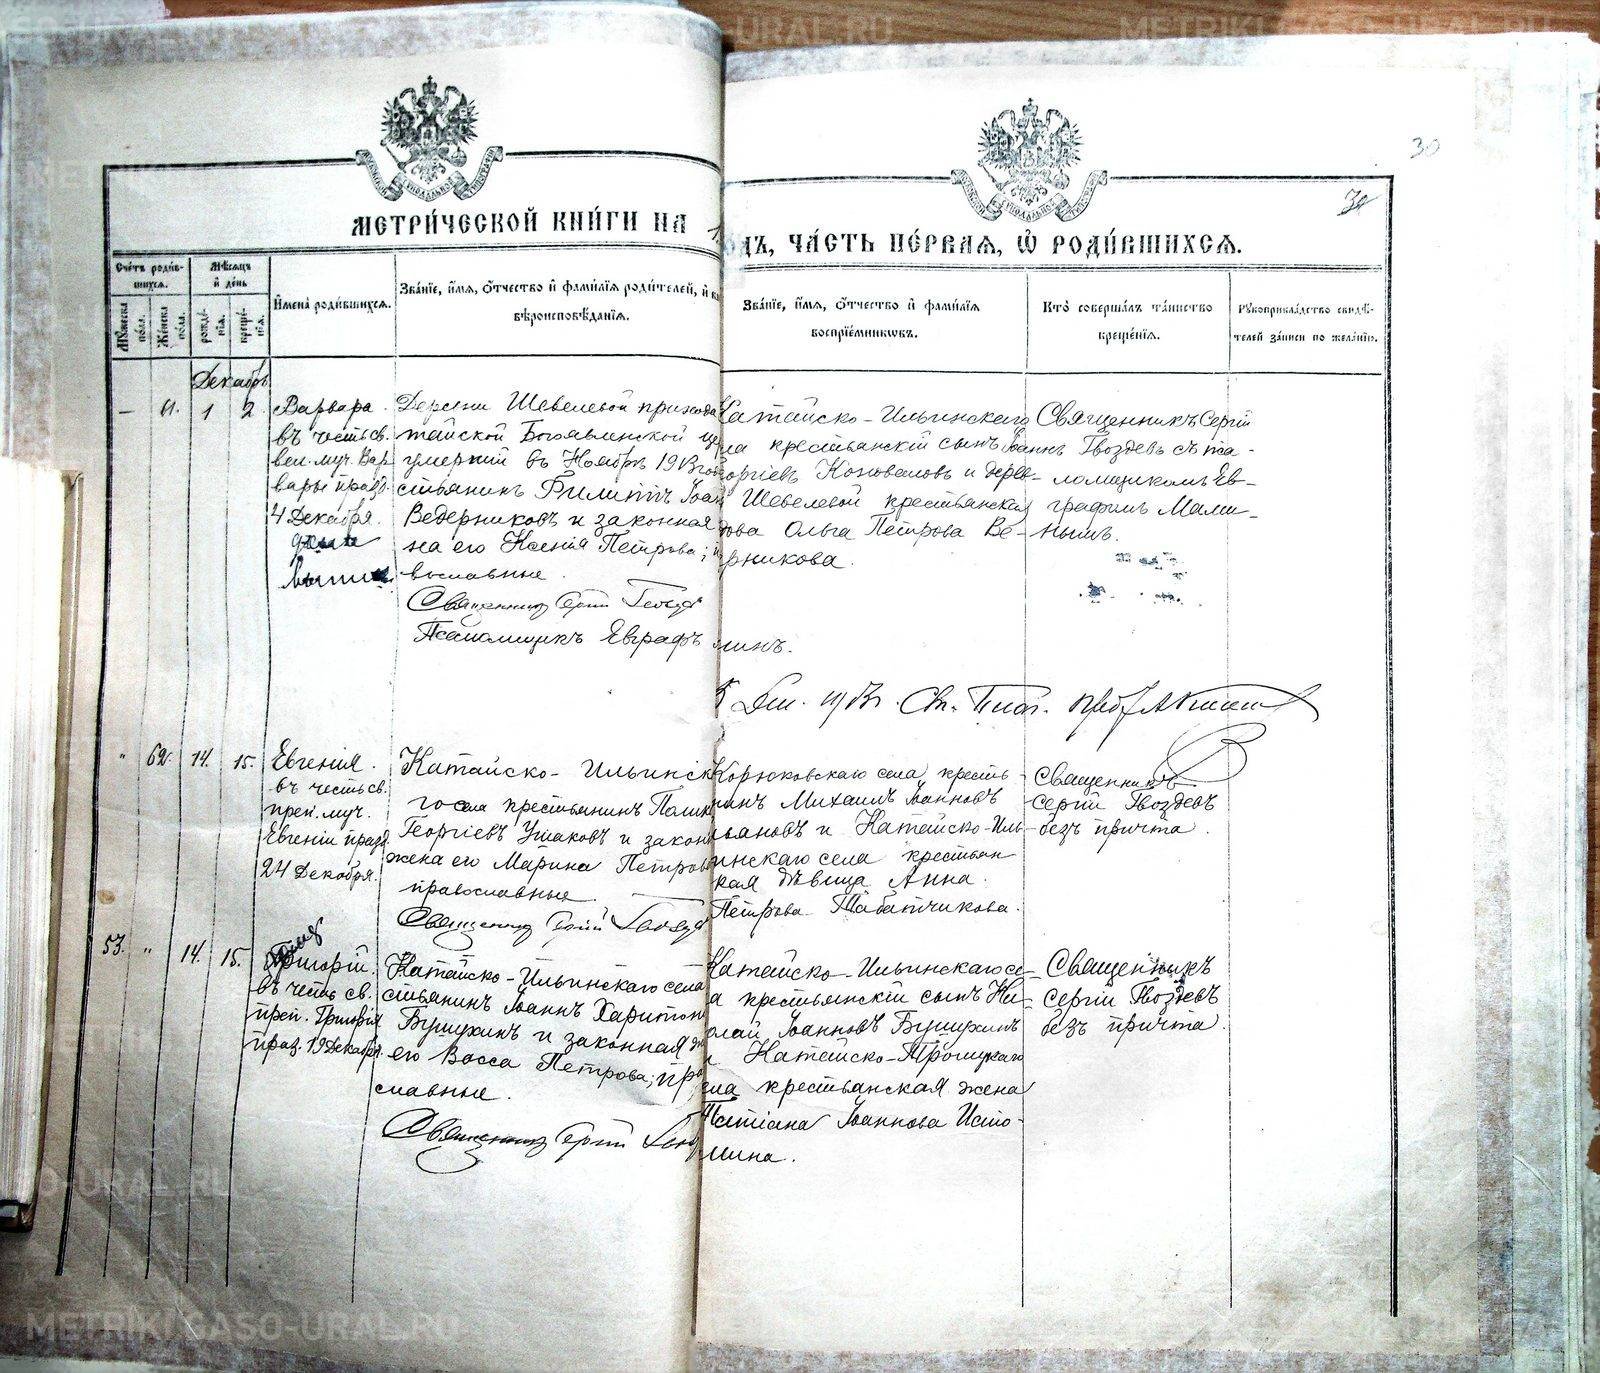 METRIKI.GASO-URAL.RU
30
30
МЕТРИ́ЧЕСКОЙ КНИ́ГИ НА
ОДЪ, ЧА́СТЬ ПЕ́РВАЯ, Ѿ РОДИ́ВШИХСЯ.
Сче́тъ роди́в-
шихся.
Мꙋ́жеска по́ла.
Же́нска по́ла.
Мѣ́сяцъ и҆ де́нь
рожде́нїя.
креще́нїя.
И҆мена̀ роди́вшихся.
Зва́нїе, и҆́мя, ѻ҆́тчество и҆ фами́лїя роди́телей, и҆
вѣроисповѣ́данїя.
Зва́нїе, и҆́мя, ѻ҆́тчество и҆ фами́лїя
воспрїе́мниковъ.
Кто̀ соверша́лъ та́инство
креще́нїя.
Рꙋкоприкла́дство свидѣ́-
телей за́писи по жела́нїю.
Декабрь
– 61. 1 2.
Варвара.
въ честь св.
вел. муч. Вар
вары празд.
4 Декабря.
Деревни Шевелевой прихода
тайской Богоявленской це
умершій въ Ноябрѣ 1913 год
стьянинъ Филиппъ Іоан
Ведерниковъ и законная
на его Ксенія Петрова;
вославные.
Священникъ Сергій Гвозде
Псаломщикъ Евграфъ
линъ.
Катайско-Ильинскаго
ла крестьянскій сынъ Іоаннъ
оргіевъ Коноваловъ и дерев-
Шевелевой крестьянская
дова Ольга Петрова Ве-
рникова.
Священникъ Сергій
Гвоздевъ съ пса-
ломщикомъ Ев-
графомъ Мали-
нымъ.
Дек. 1913 г. Св. Благ.
" 62. 14. 15.
Евгенія.
въ честь св.
преп. муч.
Евгеніи празд.
24 Декабря.
Катайско-Ильинск
го села крестьянинъ Полик
Георгіевъ Ушаковъ и закон
жена его Марина Петров
православные.
Священникъ Сергій Гвозде
Корюковскаго села кресть-
нинъ Михаилъ Іоанновъ
ьяновъ и Катайско-Иль-
инскаго села крестьян
кая дѣвица Анна
Петрова Табатчикова.
Священникъ
Сергій Гвоздевъ
безъ причта.
53. " 14. 15.
Григорій.
въ честь св.
преп. Григорія
праз. 19 Декабр.
Катайско-Ильинскаго села
стьянинъ Іоаннъ Харитон
Бушухинъ и законная
его Васса Петрова; пра
славные.
Священникъ Сергій Гвозд
Катайско-Ильинскаго се-
а крестьянскій сынъ Ни-
олай Іоанновъ Бушухинъ
и Катайско-Троицкаго
ела крестьянская жена
Татіана Іоаннова Исто-
мина.
Священникъ
Сергій Гвоздевъ
безъ причта.
METRIKI.GASO-URAL.RU